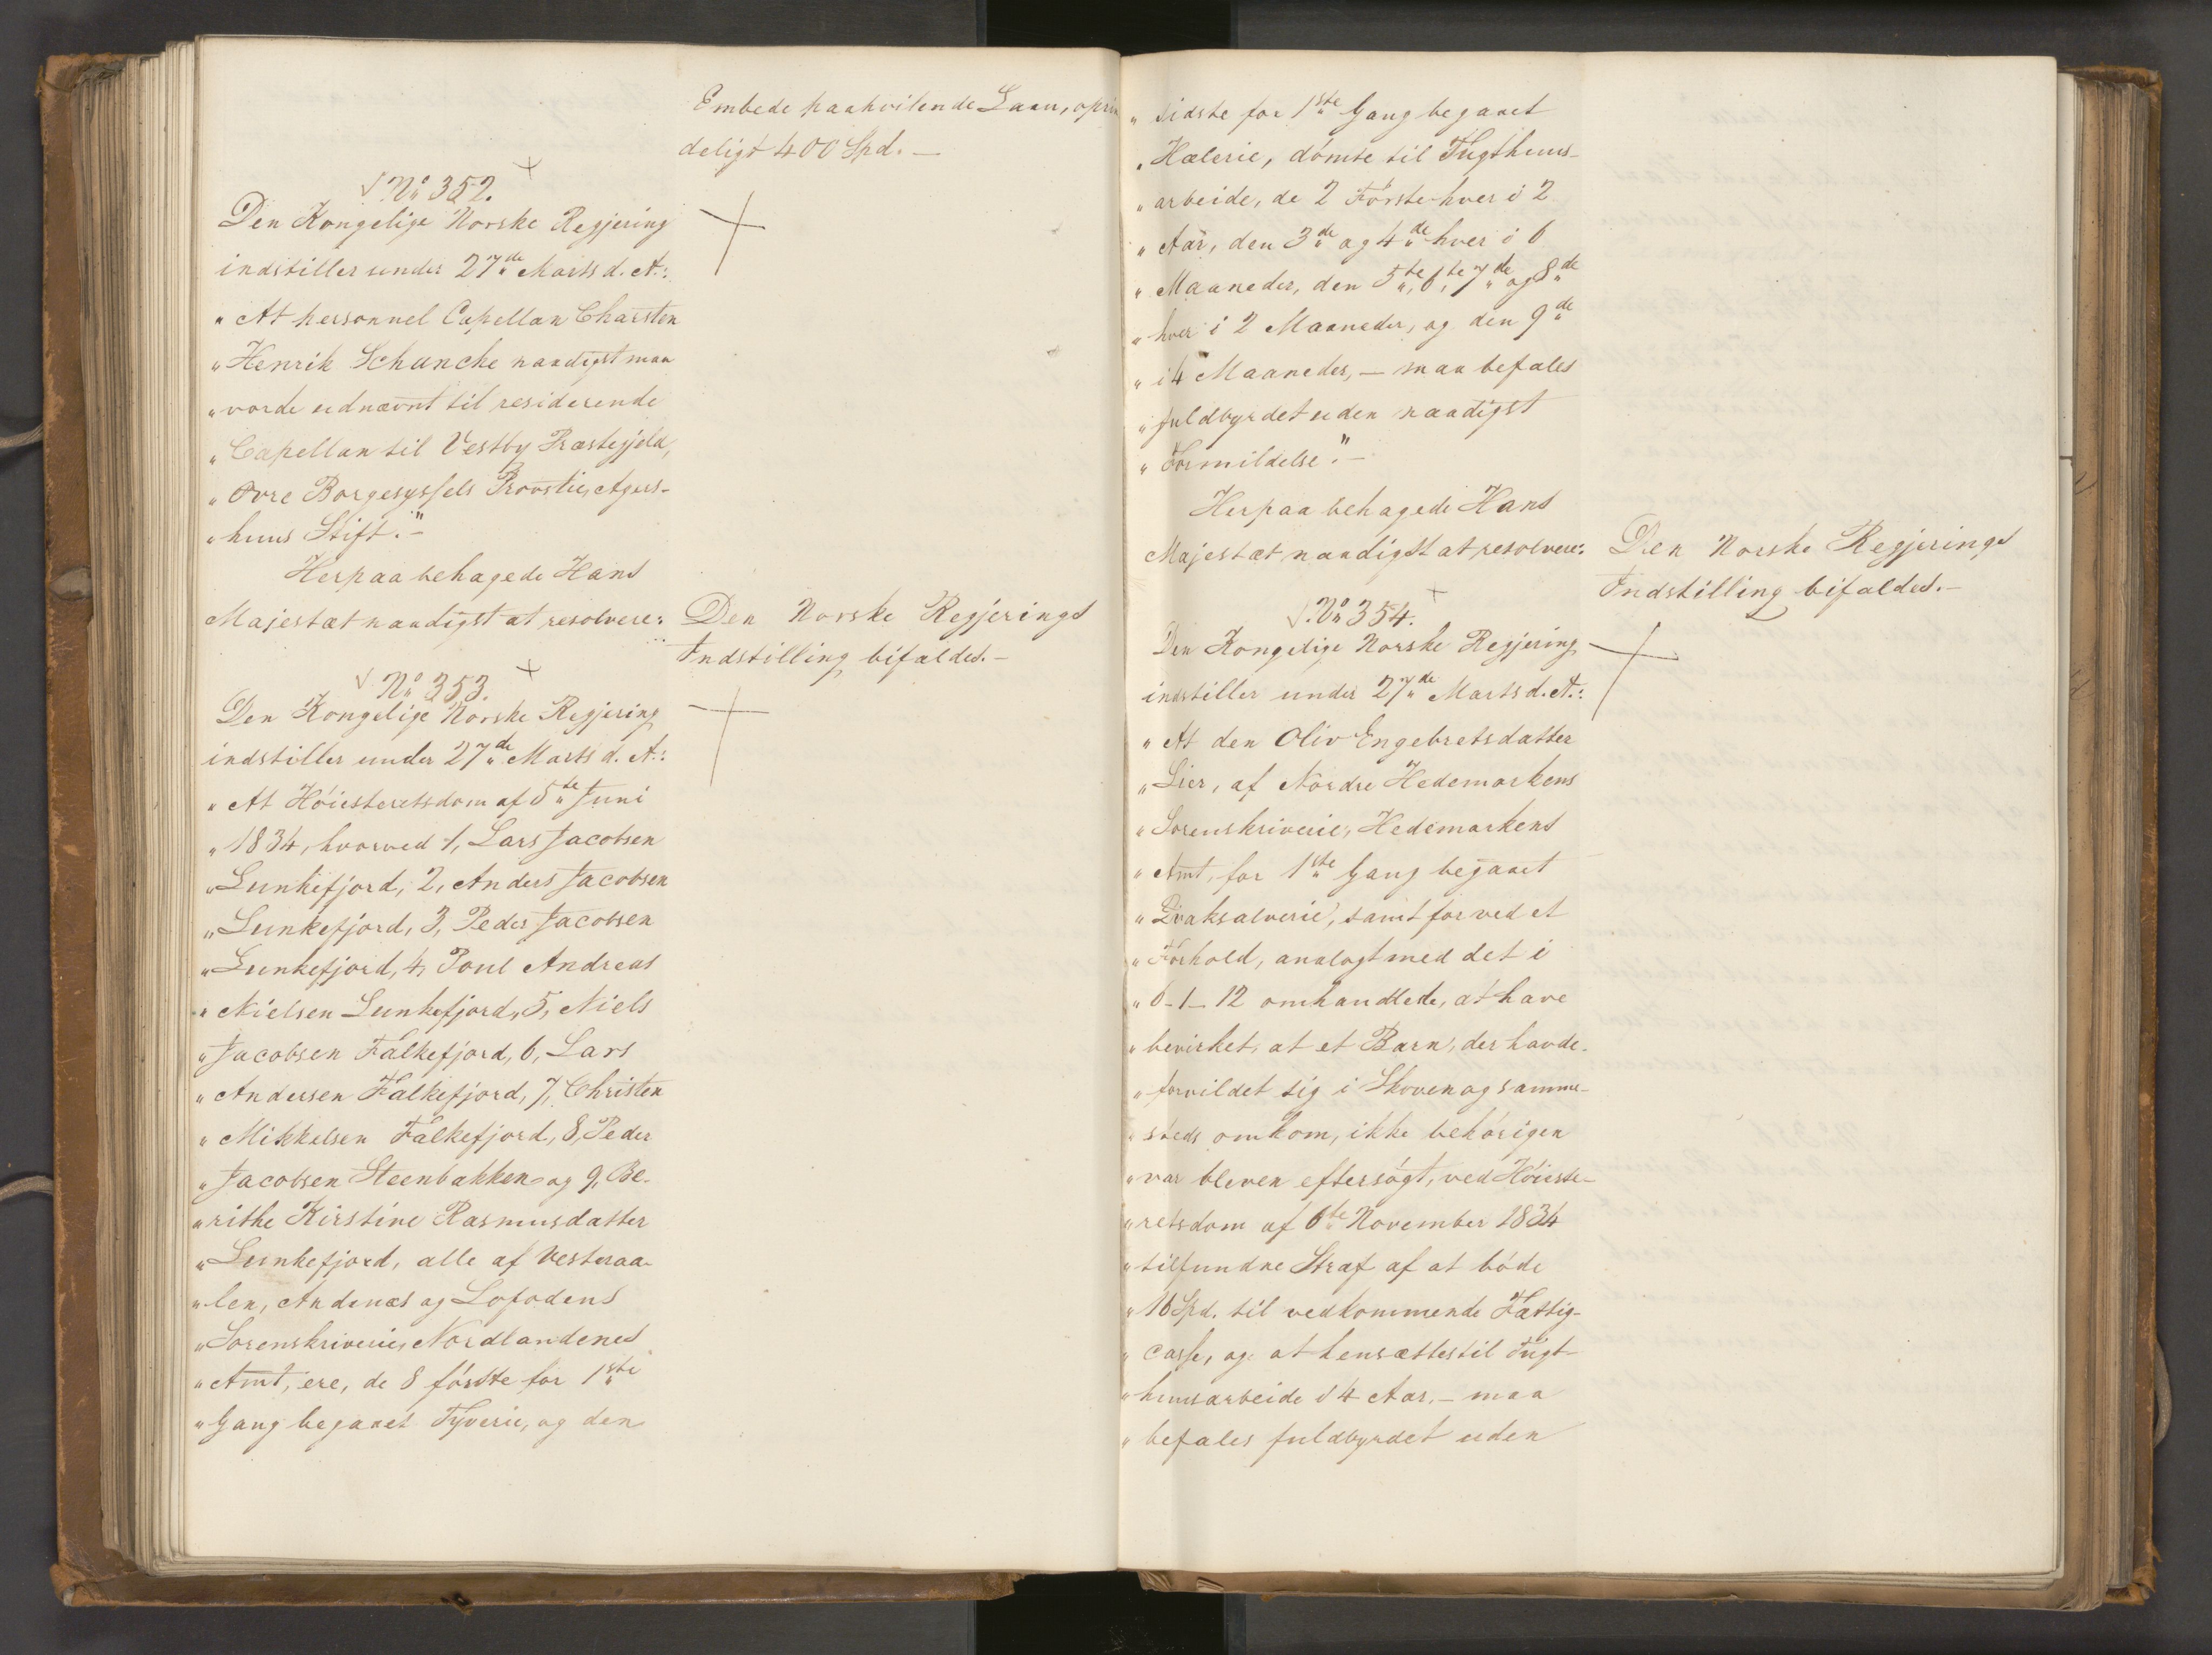 Embede paahvilende Laan, oprin
deligt 400 Spd. —
√ No 352. +
Den Kongelige Norske Regjering
indstiller under 27de Marts d. A.:
„At personnel Capellan Charsten
„Henrik Schancke naadigst maa
„vorde udnævnt til residerende
„Capellan til Vestby Præstegjeld,
„Øvre Borgesyssels Provstie, Agers-
„huus Stift.“-
Herpaa behagede Hans
Majestæt naadigst at resolvere:
Den Norske Regjerings
Indstilling bifaldes.-
√ No 353. +
Den Kongelige Norske Regjering
indstiller under 27de Marts d. A.:
„At Høiesteretsdom af 5te Juni
„1834, hvorved 1, Lars Jacobsen
„Lunkefjord, 2, Anders Jacobsen
„Lunkefjord, 3, Peder Jacobsen
„Lunkefjord, 4, Poul Andreas
„Nielsen Lunkefjord, 5, Niels
„Jacobsen Falkefjord, 6, Lars
„Andersen Falkefjord, 7, Christen
„Mikkelsen Falkefjord, 8, Peder
„Jacobsen Steenbakken og 9, Be-
„rithe Kirstine Rasmusdatter
„Lunkefjord, alle af Vesteraa-
„len, Andenæs og Lofodens
„Sorenskriverie, Nordlandenes
„Amt, ere, de 8 første for 1ste
„Gang begaaet Tyverie, og den
„sidste for 1ste Gang begaaet
„Hælerie, dømte til Tugthuus-
„arbeide, de 2 Første hver i 2
„Aar, den 3de og 4de hver i 6
„Maaneder, den 5te, 6te, 7de og 8de
„hver i 2 Maaneder, og den 9de
„i 4 Maaneder, — maa befales
„fuldbyrdet uden naadigst
„Formildelse“.-
Herpaa behagede Hans
Majestæt naadigst at resolvere:
Den Norske Regjerings
Indstilling bifaldes.-
√ No 354. +
Den Kongelige Norske Regjering
indstiller under 27de Marts d. A.:
„At den Oliv Engebretsdatter
„Lier, af Nordre Hedemarkens
„Sorenskriverie, Hedemarkens
„Amt, for 1ste Gang begaaet
„Qvaksalverie, samt for ved et
„Forhold, analogt med det i
„6-1-12 omhandlede, at have
„bevirket, at et Barn, der havde
„forvildet sig i Skoven og samme-
„steds omkom, ikke behørigen
„var bleven eftersøgt, ved Høieste-
„retsdom af 6te November 1834
„tilfundne Straf af at bøde
„16 Spd. til vedkommende Fattig-
„casse, og at hensættes til Tugt-
„huusarbeide i 4 Aar, — maa
„befales fuldbyrdet uden